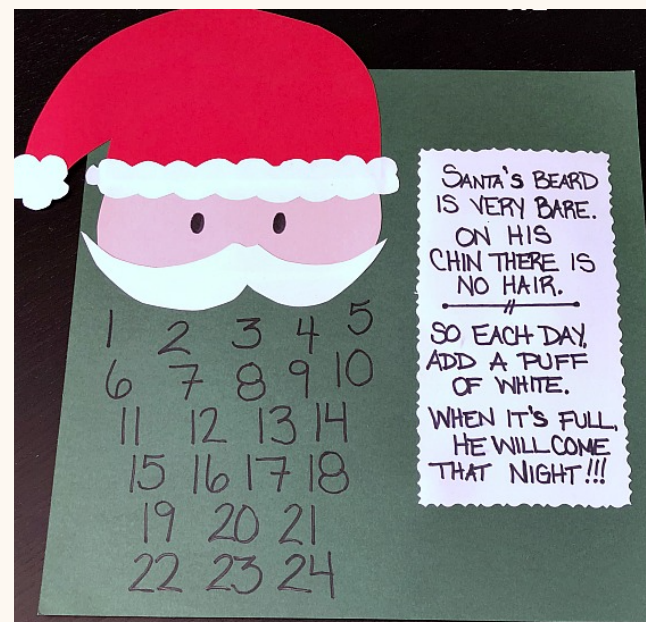 1 2 3 4 5
6 7 8 9 10
11 12 13 14
15 16 17 18
19 20 21
22 23 24
SANTA'S BEARD
IS VERY BARE.
ON HIS
CHIN THERE IS
NO HAIR.
SO EACH DAY,
ADD A PUFF
OF WHITE.
WHEN IT'S FULL,
HE WILL COME
THAT NIGHT!!!